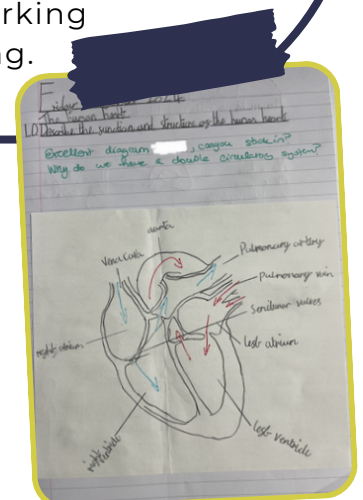 rking
g.
The human heart
L.O Describe the function and structure of the human heart
Excellent diagram, can you stick in?
Why do we have a double circulatory system?
aorta
Vena cava
Pulmonary artery
Pulmonary vein
Semilunar valves
Left atrium
right atrium
Left ventricle
right ventricle